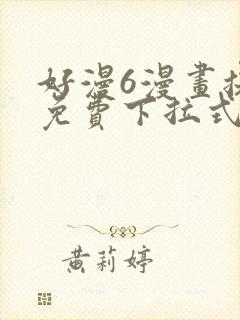 好漫6漫畫
免費下拉式
黃莉婷